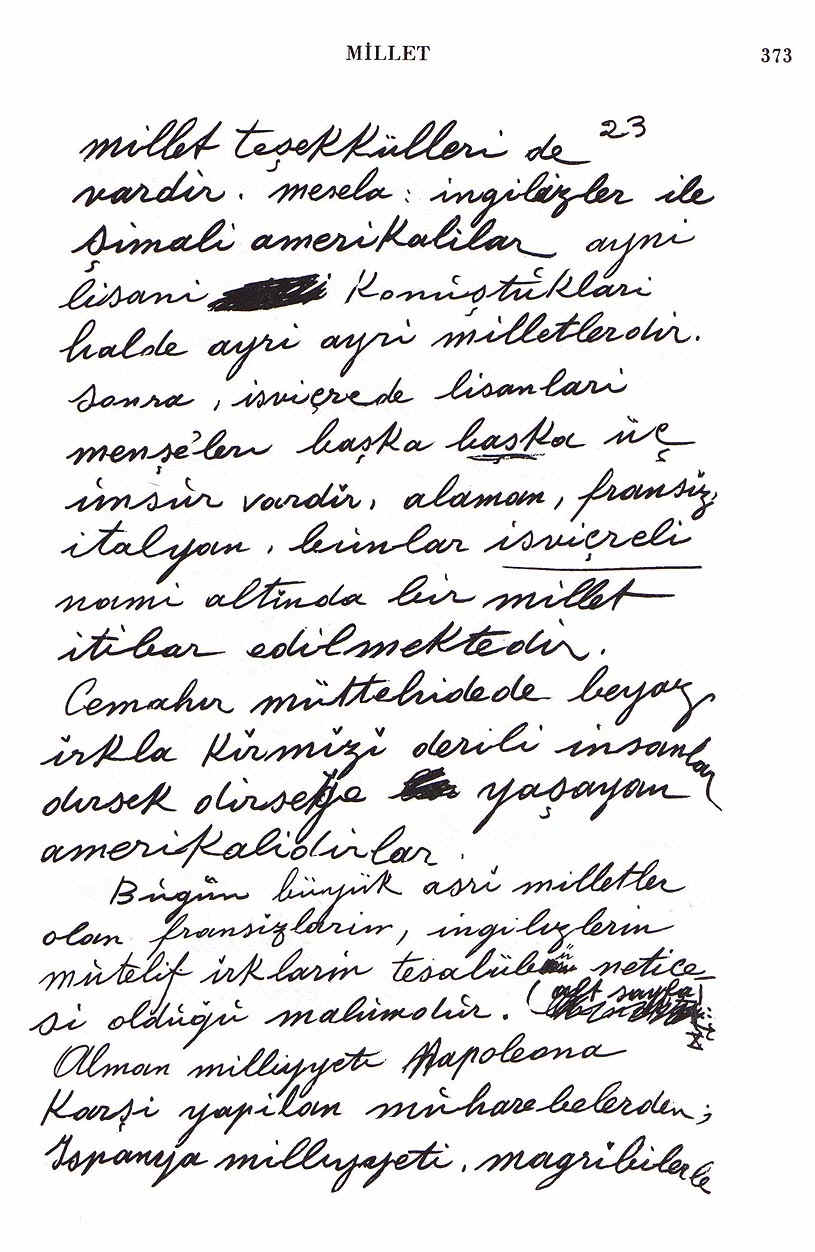 MİLLET 373
23
millet teşekkülleri de
vardir. mesela: ingilizler ile
şimali amerikalilar ayni
lisani konuştuklari
halde ayri ayri milletlerdir.
sonra, isviçrede lisanlari
menşe'leri başka başka üç
unsur vardir, alaman, fransiz,
italyan. bunlar isviçreli
nami altinda bir millet
itibar edilmektedir.
Cemahir müttehidede beyaz
irkla kirmizi derili insanlar
dirsek dirseğe yaşayan
amerikalidirlar.
Bugün büyük asri milletler
olan fransizlarin, ingilizlerin
mütelif irklarin tesalübü netice
si olduğu malumdur. (alt sayfa)
Alman milliyyeti Napoleona
karşi yapilan muharebelerden;
Ispanya milliyyeti, magribilerle